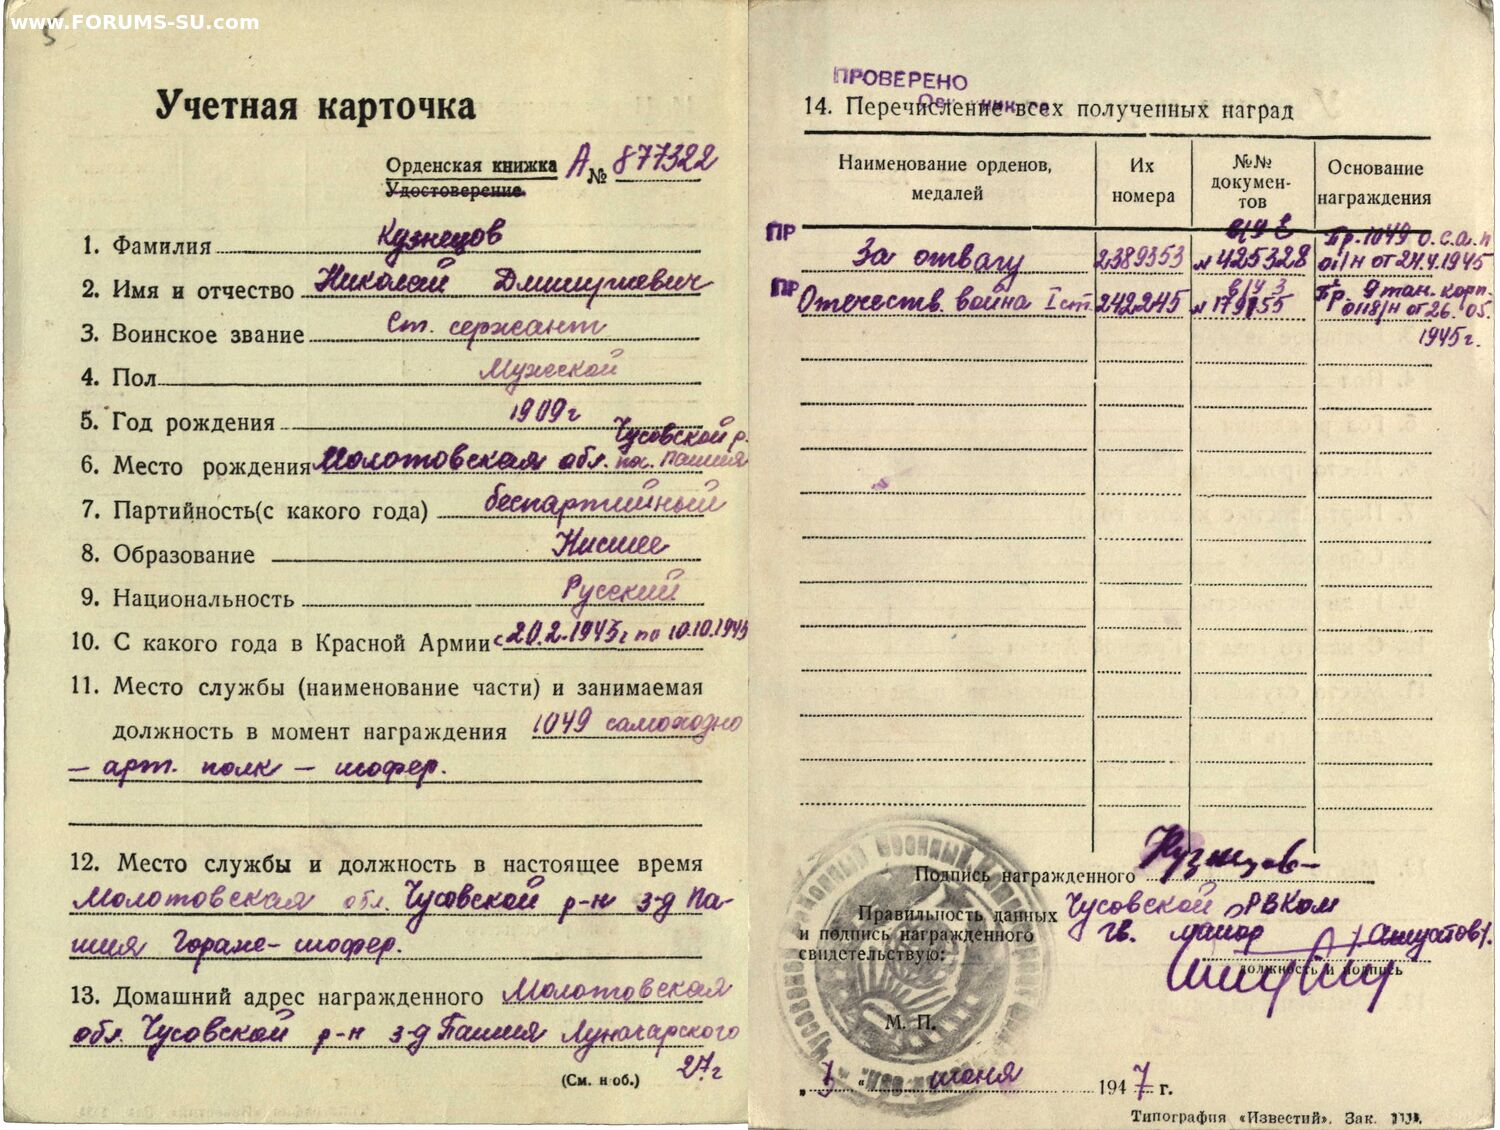 www.FORUMS-SU.com
5
Учетная карточка
Орденская книжка А № 877322
Удостоверение
1. Фамилия Кузнецов
2. Имя и отчество Николай Дмитриевич
3. Воинское звание Ст. сержант
4. Пол Мужской
5. Год рождения 1909 г
Чусовской р.
6. Место рождения Молотовская обл. пос. Пашия
7. Партийность(с какого года) беспартийный
8. Образование Нисшее
9. Национальность Русский
10. С какого года в Красной Армии с 20.2.1943г по 10.10.1945
11. Место службы (наименование части) и занимаемая
должность в момент награждения 1049 самоходно
– арт. полк – шофер.
12. Место службы и должность в настоящее время
Молотовская обл. Чусовской р-н з-д Па-
шия гараже - шофер.
13. Домашний адрес награжденного Молотовская
обл. Чусовской р-н з-д Пашия Луначарского
(См. н об.) 27г
ПРОВЕРЕНО
14. Перечисление всех полученных наград
Наименование орденов, медалей
Их номера
№№ документов
Основание награждения
ПР За отвагу 2389353 в/у Е № 425328 Пр. 1049 О.С.А.П 01/н от 24.4.1945
ПР Отечеств. война I ст. 242245 в/у З № 179155 Пр. 9 тан. корп. 0118/н от 26.05.1945г.
Подпись награжденного Кузнецов
Правильность данных Чусовской РВКом
и подпись награжденного гв. майор
свидетельствую:
должность и подпись
М. П.
„7“ июня 1947 г.
Типография «Известий». Зак.